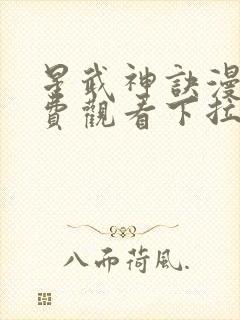 星武神訣漫
費觀看下拉
八而荷風.